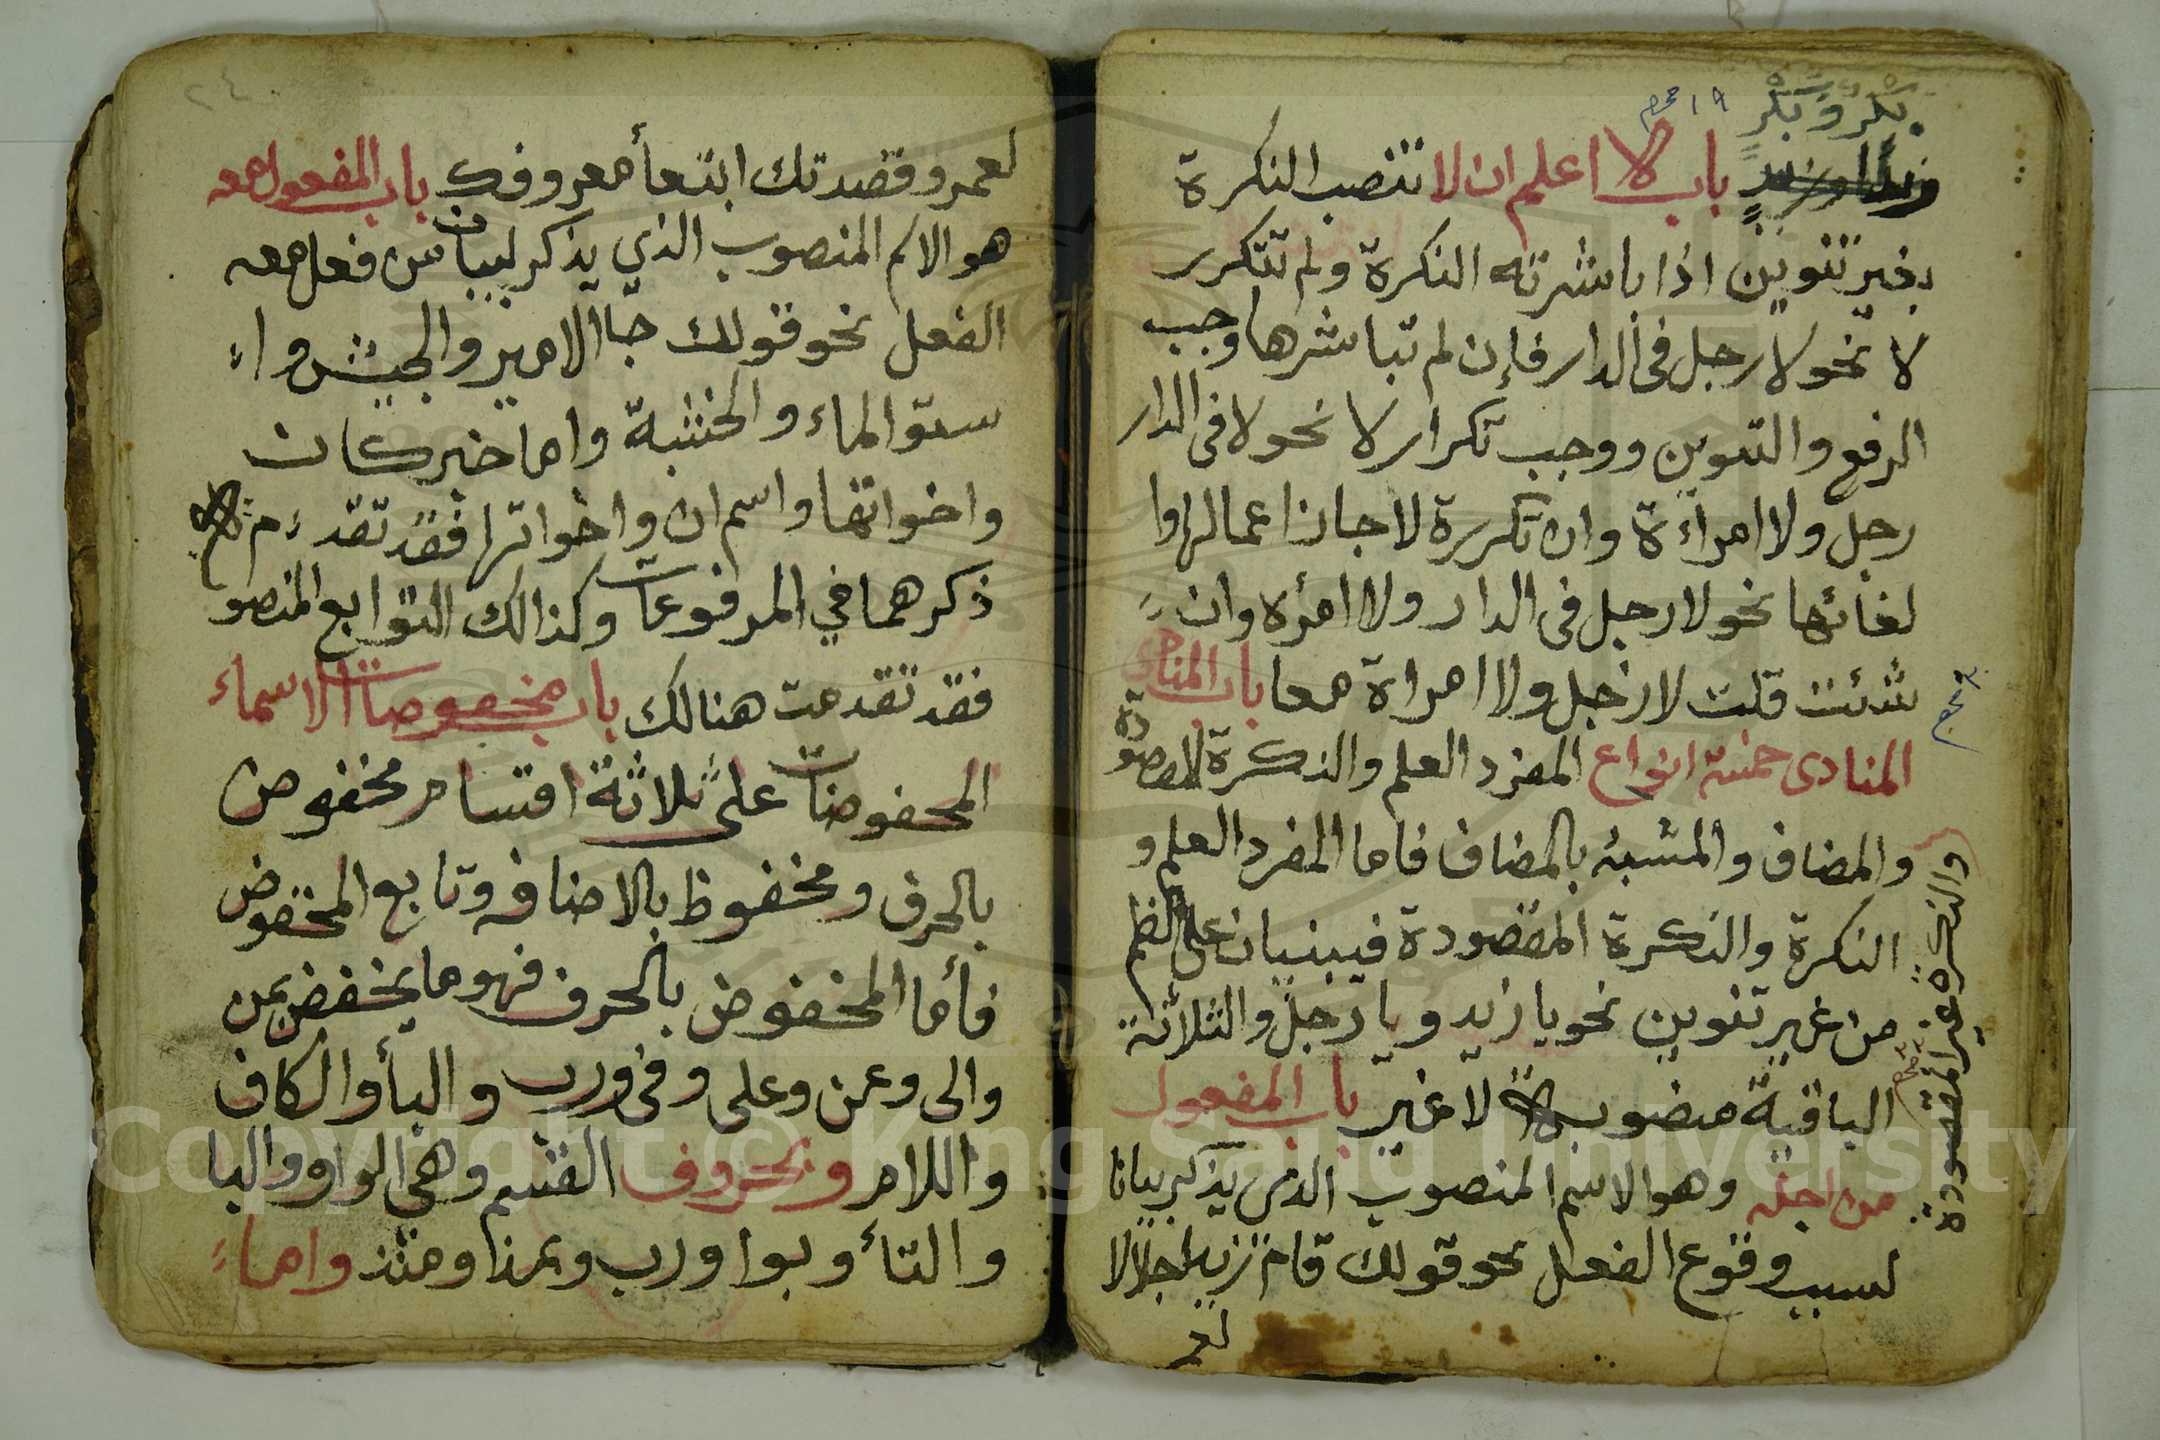 بكر وبكر
باب لا اعلم ان لا تنصب النكرة
بغير تنوين اذا باشرته النكرة ولم تتكرر
لا نحو لا رجل في الدار فإن لم تباشرها وجب
الرفع والتنوين ووجب تكرار لا نحو لا في الدار
رجل ولا امراءة وان تكررة لا جاز اعمالها وا
لغائها نحو لا رجل في الدار ولا امأرة وان
شئت قلت لا رجل ولا امراة معا باب المنادى
المنادى خمسة انواع المفرد العلم والنكرة المقصودة
والنكرة غير المقصودة
والمضاف والمشبه بالمضاف فاما المفرد العلم و
النكرة والنكرة المقصودة فيبنيان على الظم
من غير تنوين نحو يا زيد ويا رجل والثلاثة
الباقية منصوبة لا غير باب المفعول
من اجله وهو الاسم المنصوب الذي يذكر بيانا
لسبب وقوع الفعل نحو قولك قام زيد اجلالا
لعمر
لعمرو وقصدتك ابتغأ معروفك باب المفعول معه
هو الاسم المنصوب الذي يذكر لبيان من فعل معه
الفعل نحو قولك جا الامير والجيش وا
ستوا الماء والخشبة واما خبر كان
واخواتها واسم ان واخواتها فقد تقدم
ذكرهما في المرفوعات وكذالك التوابع المنصو
فقد تقدمت هنالك باب مخفوضات الاسماء
المخفوضات على ثلاثة اقسام مخفوض
بالحرف ومخفوظ بالاضافه وتابع المخفوض
فأما المخفوض بالحرف فهو ما يخفض بمن
والى وعن وعلى وفي ورب والبأ والكاف
واللام وبحروف القسم وهي الواو والبا
والتأ وبوا ورب وبمذ ومنذ واما
٢٤
Copyright © King Saud University